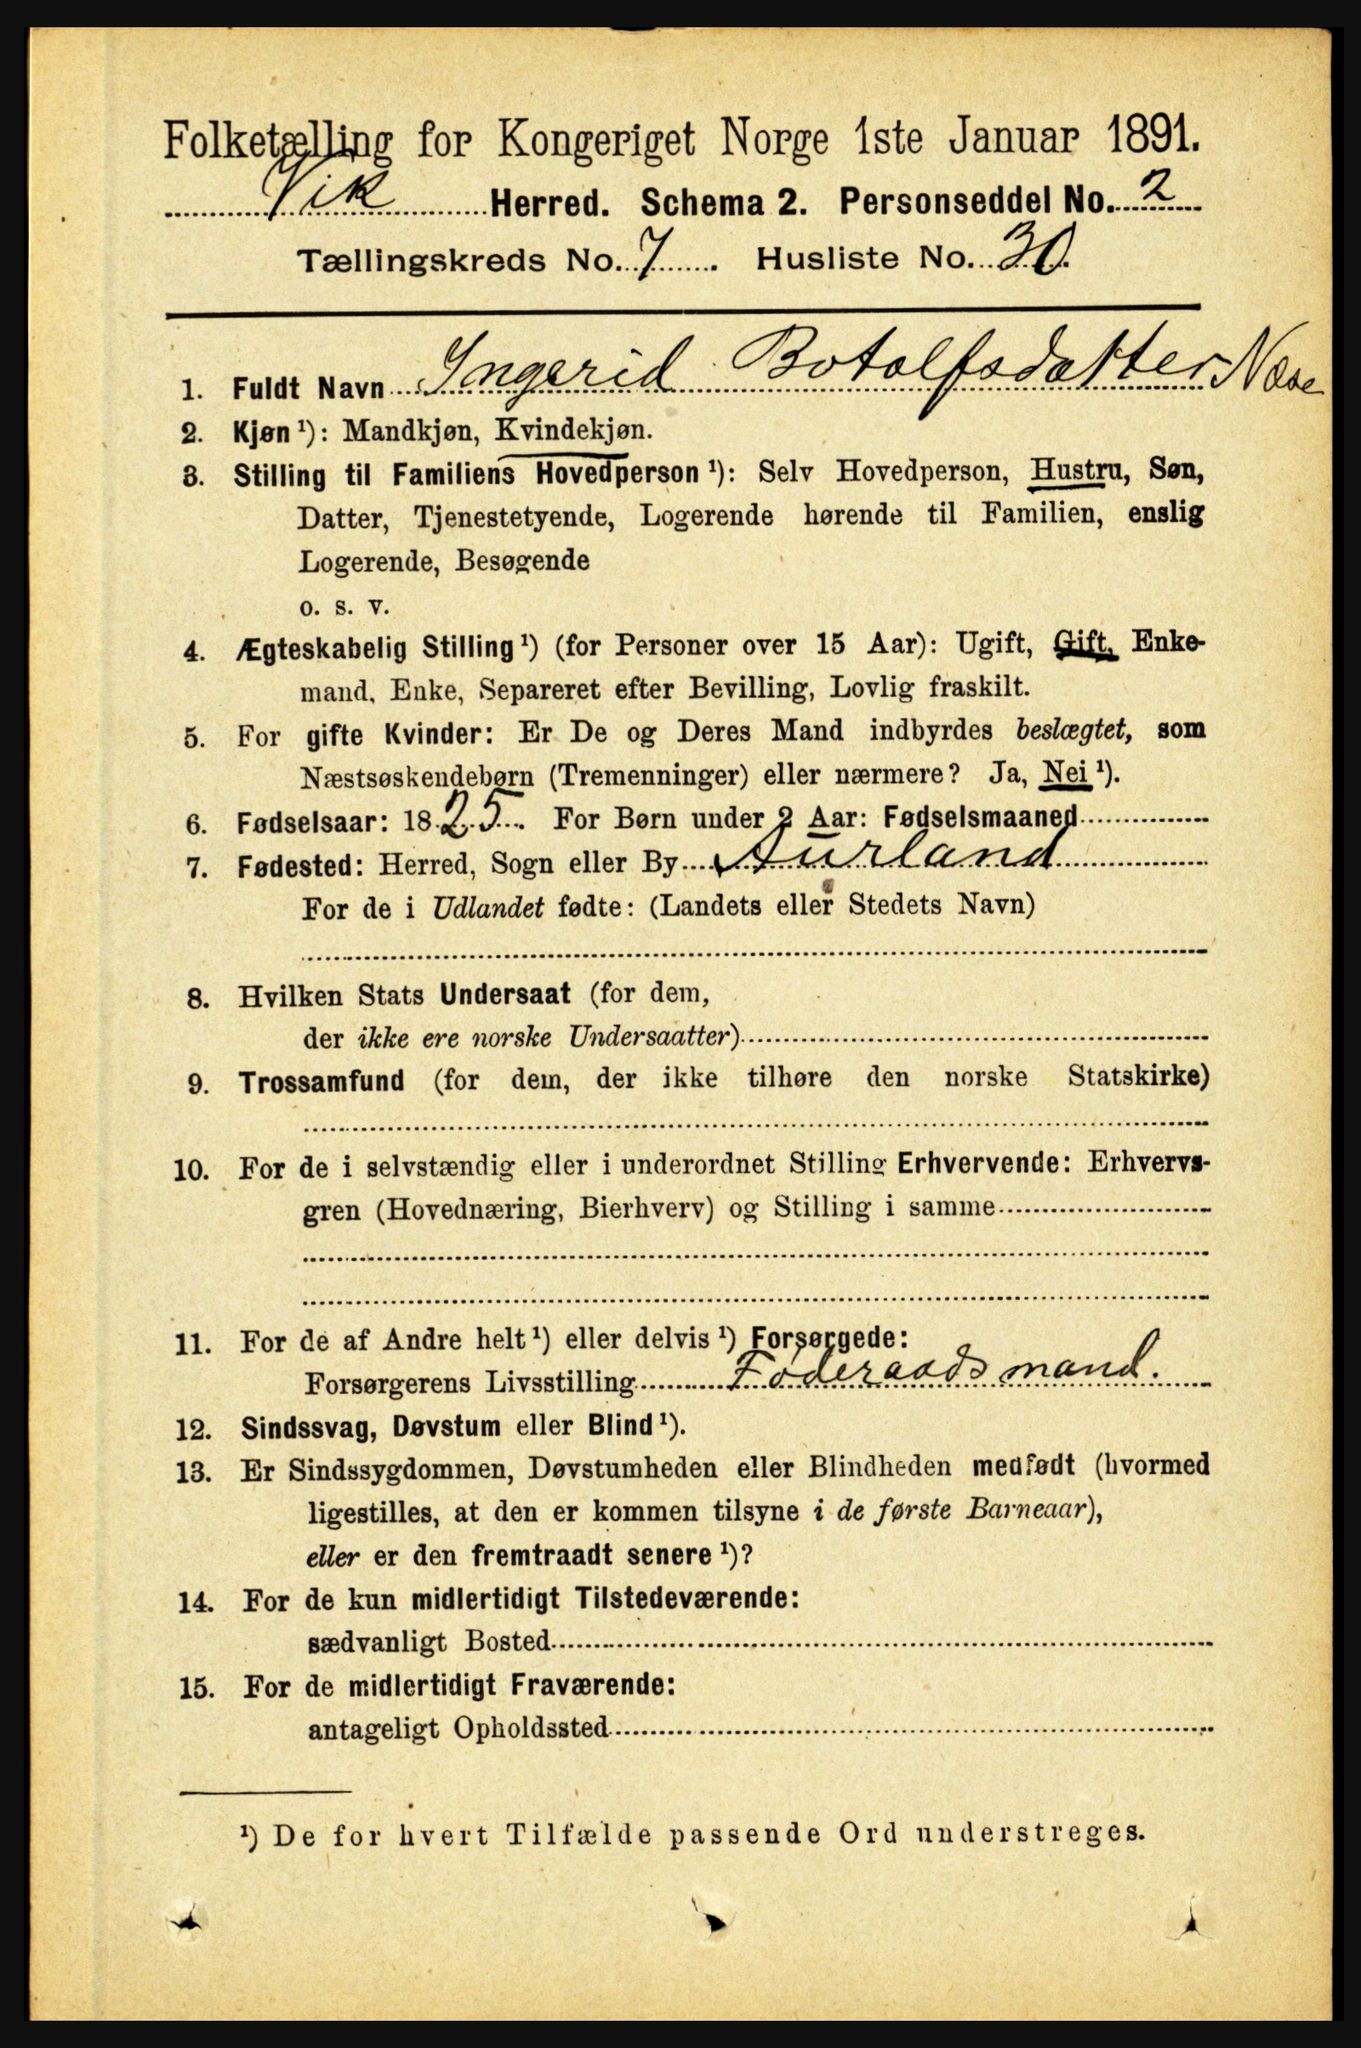 Folketælling for Kongeriget Norge 1ste Januar 1891.
Vik Herred. Schema 2. Personseddel No. 2
Tællingskreds No. 7 . Husliste No. 30.
1. Fuldt Navn Ingerid Botolfsdatter Næse
2. Kjøn ¹): Mandkjøn, Kvindekjøn.
3. Stilling til Familiens Hovedperson ¹): Selv Hovedperson, Hustru, Søn,
Datter, Tjenestetyende, Logerende hørende til Familien, enslig
Logerende, Besøgende
o. s. v.
4. Ægteskabelig Stilling ¹) (for Personer over 15 Aar): Ugift, Gift, Enke-
mand, Enke, Separeret efter Bevilling, Lovlig fraskilt.
5. For gifte Kvinder: Er De og Deres Mand indbyrdes beslægtet, som
Næstsøskendebørn (Tremenninger) eller nærmere? Ja, Nei ¹).
6. Fødselsaar: 1825. For Børn under 2 Aar: Fødselsmaaned
7. Fødested: Herred, Sogn eller By Aurland
For de i Udlandet fødte: (Landets eller Stedets Navn)
8. Hvilken Stats Undersaat (for dem,
der ikke ere norske Undersaatter)
9. Trossamfund (for dem, der ikke tilhøre den norske Statskirke)
10. For de i selvstændig eller i underordnet Stilling Erhvervende: Erhvervs-
gren (Hovednæring, Bierhverv) og Stilling i samme
11. For de af Andre helt ¹) eller delvis ¹) Forsørgede:
Forsørgerens Livsstilling Føderaadsmand.
12. Sindssvag, Døvstum eller Blind ¹).
13. Er Sindssygdommen, Døvstumheden eller Blindheden medfødt (hvormed
ligestilles, at den er kommen tilsyne i de første Barneaar),
eller er den fremtraadt senere ¹)?
14. For de kun midlertidigt Tilstedeværende:
sædvanligt Bosted
15. For de midlertidigt Fraværende:
antageligt Opholdssted
¹) De for hvert Tilfælde passende Ord understreges.